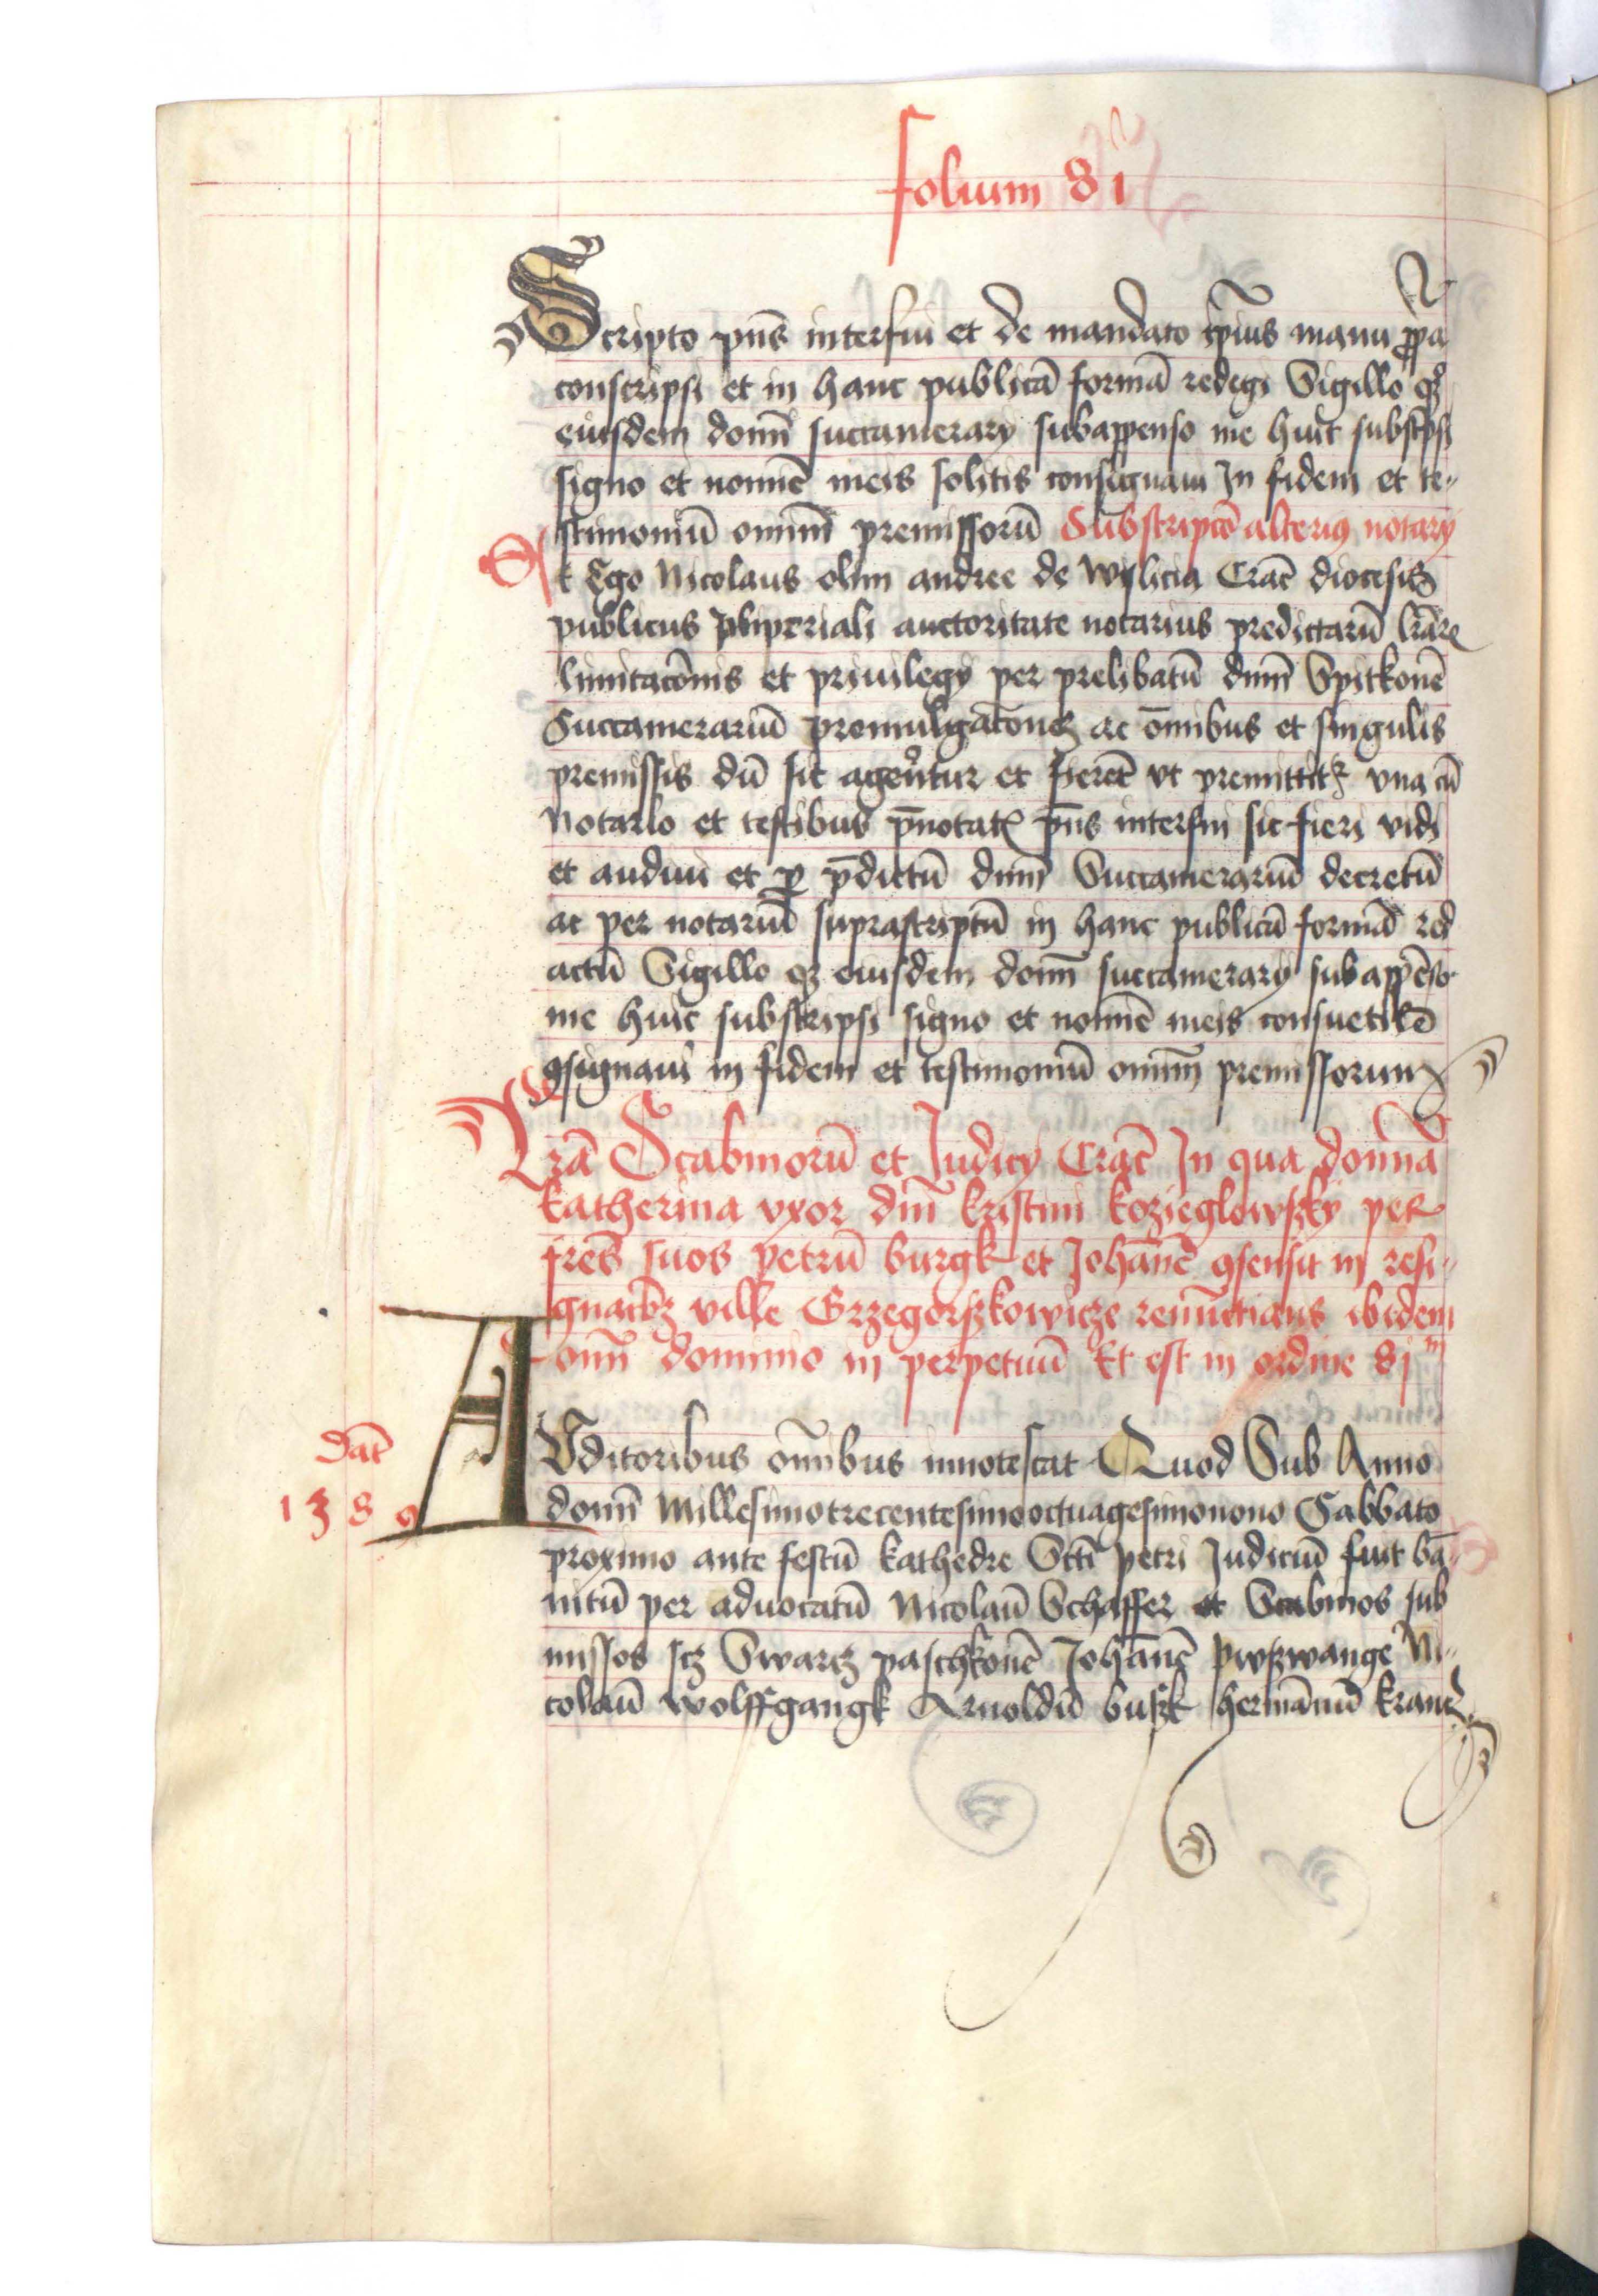 folium 81
Scripto pn̄s interfui et de mandato ip̄ius manu ꝓp̄a
conscripsi et in hanc publicā formā redegi Sigillo qꝫ
eiusdem domī succamerarÿ subappenso me huic subsc̄psi
signo et nomīe meis solitis consignaui In fidem et te„
stimoniū omniū premissorū Subscriptō alterius notarÿ
Et Ego Nicolaus olim andree de wyslicia Crac̄ diocesis
publicus Imperiali auctoritate notarius predictarū lr̄arꝝ
limitacōnis et priuilegÿ per prelibatū dnm̄ Spitkonē
Succamerariū promulgacōneꝫ ac om̄ibus et singulis
premissis dū sic agerentur et fierēt vt premittitꝛ vna cū
Notario et testibus p̄notatꝭ pn̄s interfui sic fieri vidi
et audiui et ꝑ p̄dictū dnm̄ Succamerariū decretū
ac per notariū suprascriptū in hanc publicā formā red
actū Sigillo qꝫ eiusdem domī succamerarÿ subappēso
me huic subscripsi signo et nomīe meis consuetis
ꝯsignaui in fidem et testimoniū omniū premissorum
Lr̄a Scabinorū et Judicÿ Crac̄ In qua domīa
katherina vxor dnī kristini kozieglowsky per
fres̄ suos petrū burgk et Johānē ꝯsensit in resi„
gnacōeꝫ ville Grzegorzkowicze renūctians ibidem
omī dominio in perpetuū Et est in ordine 81m
AUditoribus om̄ibus innotescat Quod Sub Anno
Dat̄
1389
domī Millesimotrecentesimooctuagesimonono Sabbato
proximo ante festū kathedre Sct̄i petri Judiciū fuit bā„
nitū per aduocatū Nicolaū Schaffer et Scabinos sub
missos scꝫ Swartꝫ paschkonē Johānē pwswange Ni„
colaū wolffgangk Arnoldū busk hermānū krancz